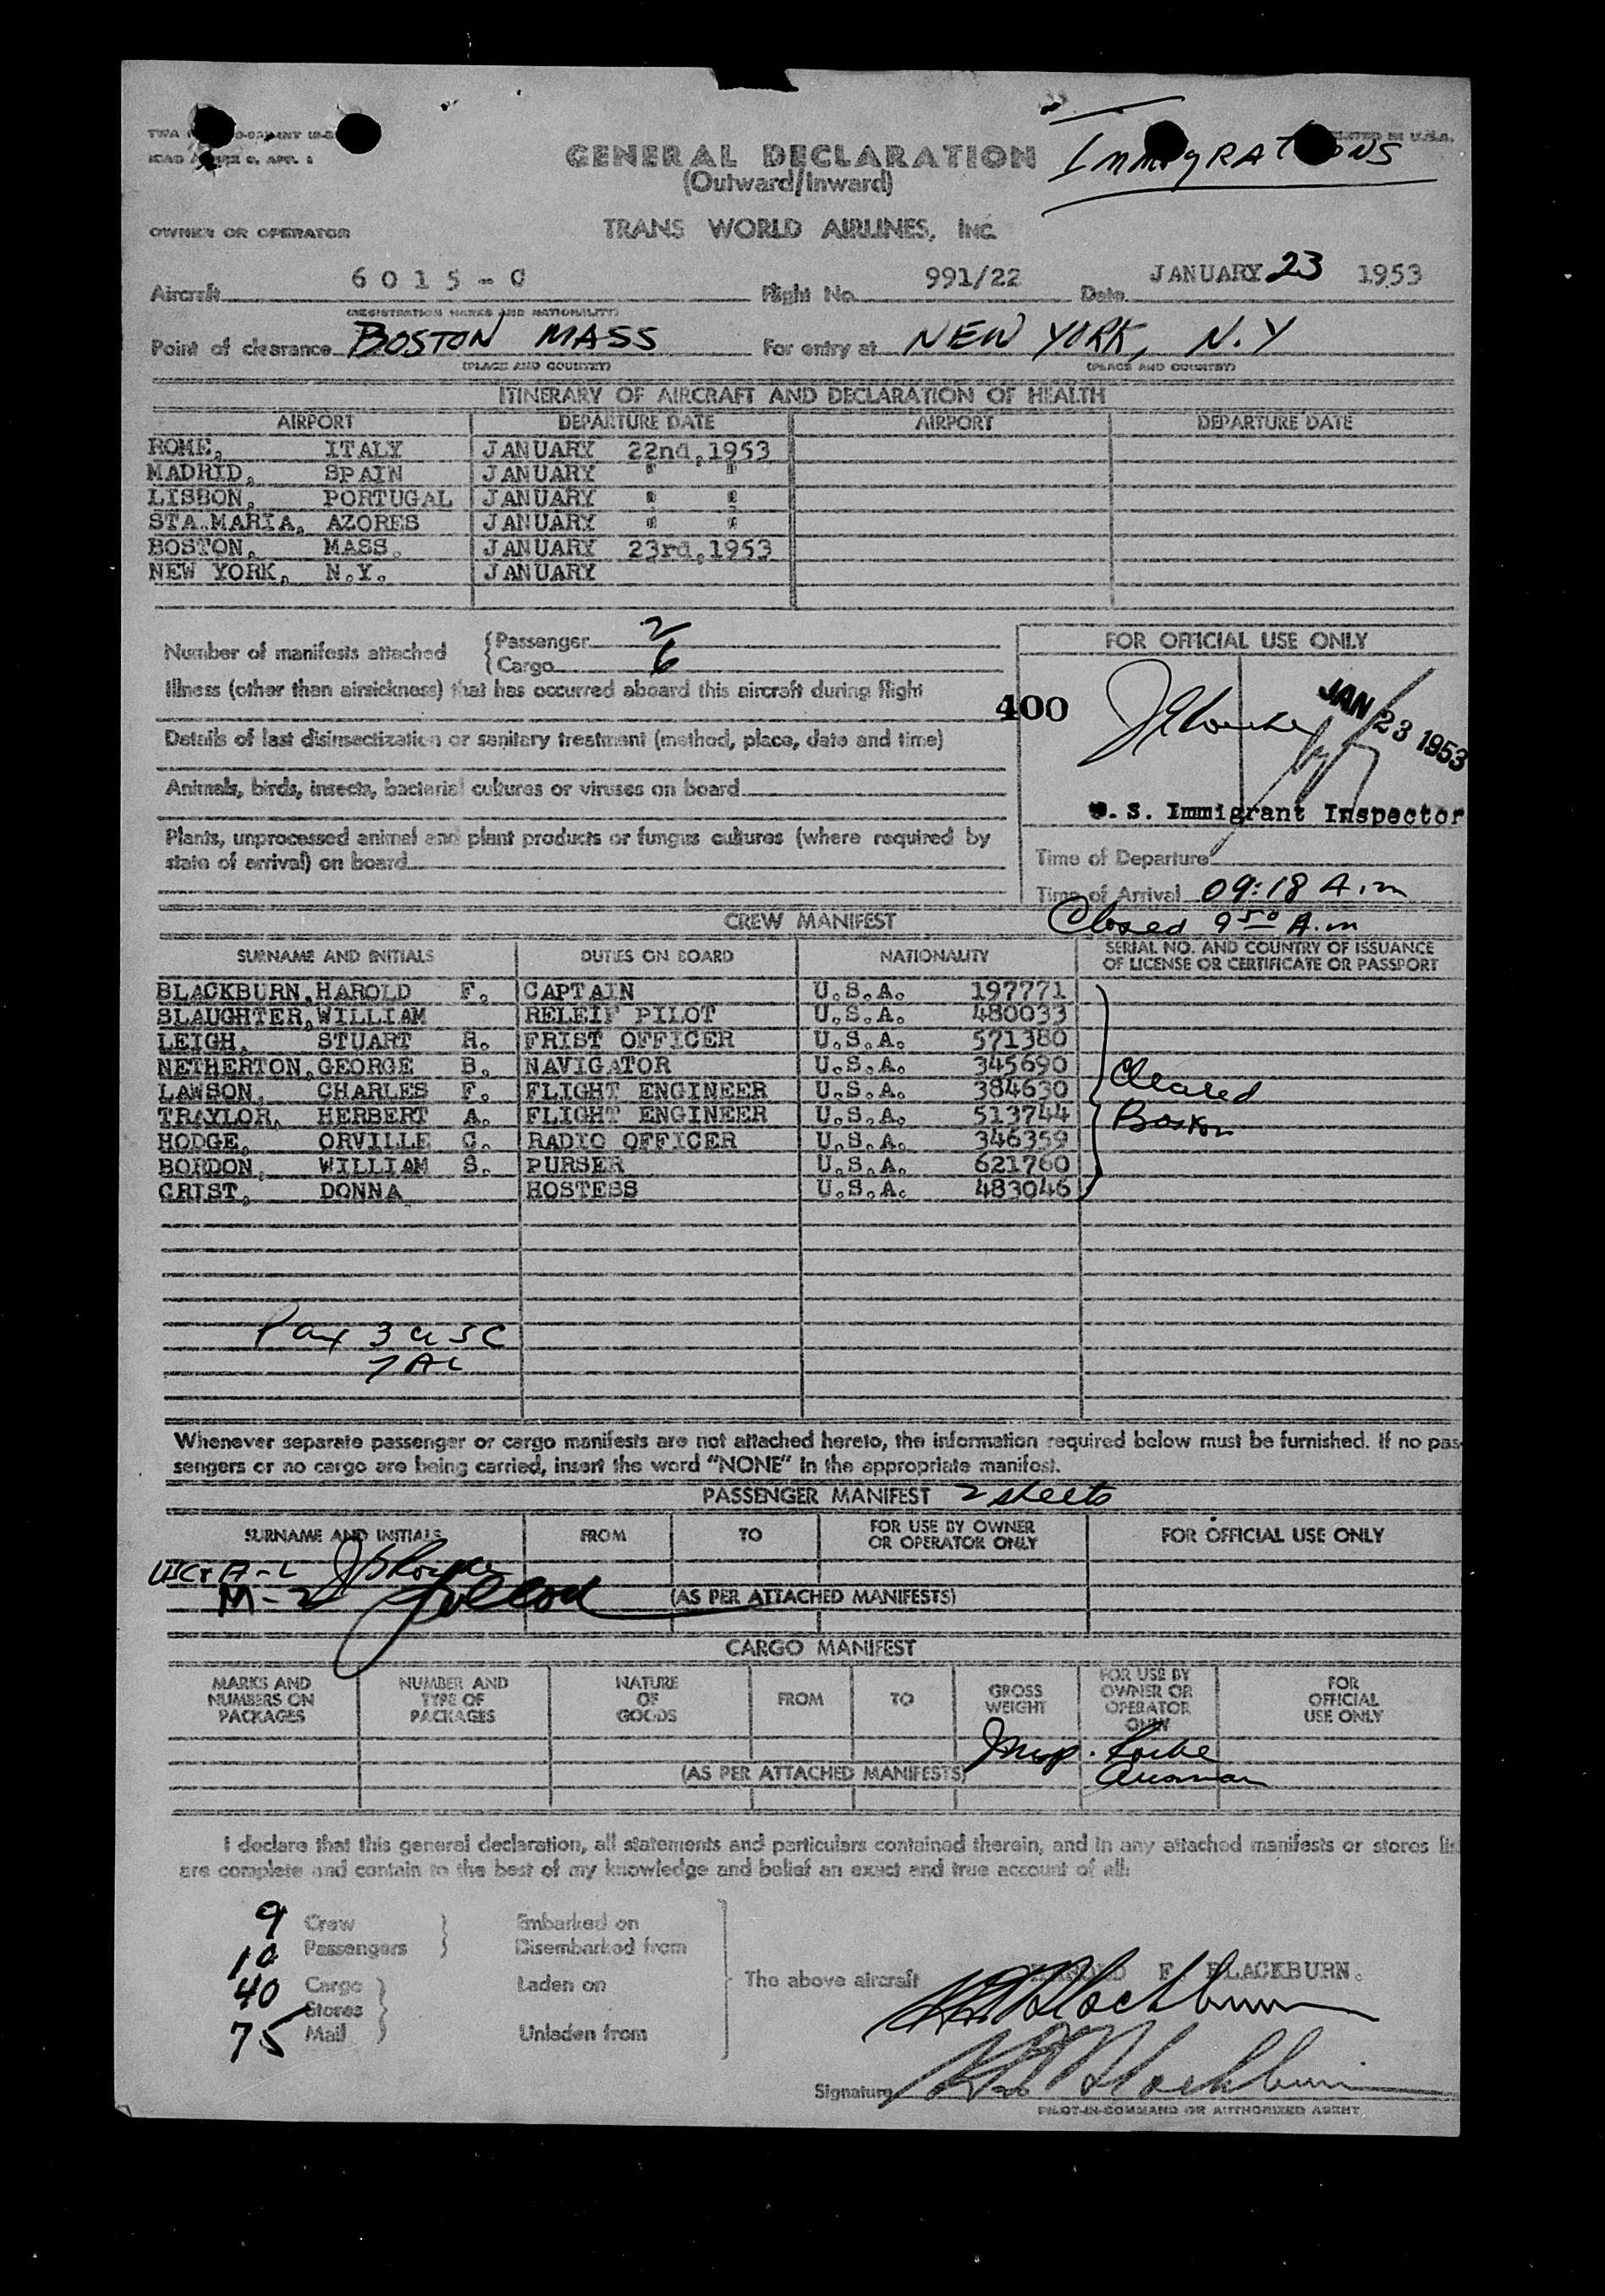 GENERAL DECLARATION
(Outward/Inward)
IMMIGRATIONS
OWNER OR OPERATOR TRANS WORLD AIRLINES, INC.
Aircraft 6015-C Flight No. 991/22 Date JANUARY 23 1953
(REGISTRATION MARKS AND NATIONALITY)
Point of clearance BOSTON MASS For entry at NEW YORK, N.Y
(PLACE AND COUNTRY) (PLACE AND COUNTRY)
ITINERARY OF AIRCRAFT AND DECLARATION OF HEALTH
AIRPORT DEPARTURE DATE AIRPORT DEPARTURE DATE
ROME, ITALY JANUARY 22nd,1953
MADRID, SPAIN JANUARY " "
LISBON, PORTUGAL JANUARY " "
STA.MARIA, AZORES JANUARY " "
BOSTON, MASS. JANUARY 23rd,1953
NEW YORK, N.Y. JANUARY
Number of manifests attached Passenger 2
Cargo 6
Illness (other than airsickness) that has occurred aboard this aircraft during flight
Details of last disinsectization or sanitary treatment (method, place, date and time)
Animals, birds, insects, bacterial cultures or viruses on board
Plants, unprocessed animal and plant products or fungus cultures (where required by
state of arrival) on board
FOR OFFICIAL USE ONLY
400
JAN 23 1953
U. S. Immigrant Inspector
Time of Departure
Time of Arrival 09:18 A.m
Closed 9 50 A.m
CREW MANIFEST
SURNAME AND INITIALS DUTIES ON BOARD NATIONALITY SERIAL NO. AND COUNTRY OF ISSUANCE
OF LICENSE OR CERTIFICATE OR PASSPORT
BLACKBURN,HAROLD F. CAPTAIN U.S.A. 197771
SLAUGHTER,WILLIAM RELEIF PILOT U.S.A. 480033
LEIGH, STUART R. FRIST OFFICER U.S.A. 571380
NETHERTON,GEORGE B. NAVIGATOR U.S.A. 345690
LAWSON, CHARLES F. FLIGHT ENGINEER U.S.A. 384630
TRAYLOR, HERBERT A. FLIGHT ENGINEER U.S.A. 513744
HODGE, ORVILLE C. RADIO OFFICER U.S.A. 346359
BORDON, WILLIAM S. PURSER U.S.A. 621760
CRIST, DONNA HOSTESS U.S.A. 483046
Cleared
Boston
Pax 3 USC
7 AL
Whenever separate passenger or cargo manifests are not attached hereto, the information required below must be furnished. If no pas-
sengers or no cargo are being carried, insert the word "NONE" in the appropriate manifest.
PASSENGER MANIFEST 2 sheets
SURNAME AND INITIALS FROM TO FOR USE BY OWNER
OR OPERATOR ONLY FOR OFFICIAL USE ONLY
M-2
(AS PER ATTACHED MANIFESTS)
CARGO MANIFEST
MARKS AND
NUMBERS ON
PACKAGES
NUMBER AND
TYPE OF
PACKAGES
NATURE
OF
GOODS
FROM
TO
GROSS
WEIGHT
FOR USE BY
OWNER OR
OPERATOR
ONLY
FOR
OFFICIAL
USE ONLY
Insp.
(AS PER ATTACHED MANIFESTS)
I declare that this general declaration, all statements and particulars contained therein, and in any attached manifests or stores lis
are complete and contain to the best of my knowledge and belief an exact and true account of all:
9 Crew Embarked on
10 Passengers Disembarked from
40 Cargo Laden on
Stores
75 Mail Unladen from
The above aircraft HAROLD F BLACKBURN.
H F Blackburn
Signature H F Blackburn
PILOT-IN-COMMAND OR AUTHORIZED AGENT